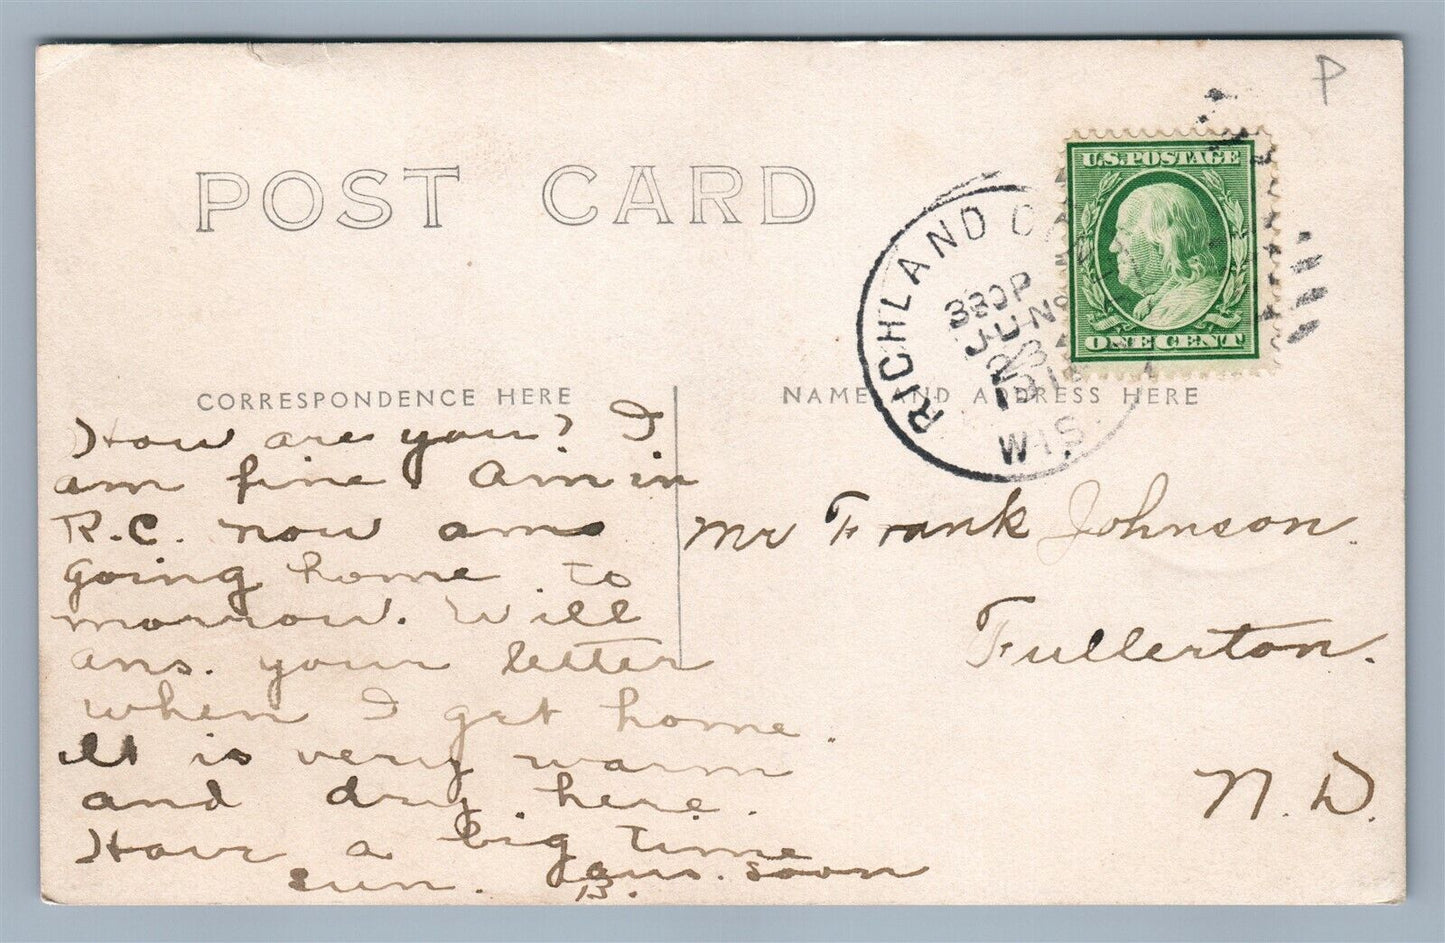 P
POST CARD
U.S. POSTAGE
ONE CENT
RICHLAND
330 P
JUN
23
WIS.
CORRESPONDENCE HERE
NAME AND ADDRESS HERE
How are you? I
am fine. Am in
R.C. now am
going home to
morrow. Will
ans. your letter
when I get home.
It is very warm
and dry here.
Have a big time
sun. ans. soon
B.
Mr Frank Johnson.
Fullerton.
N. D.